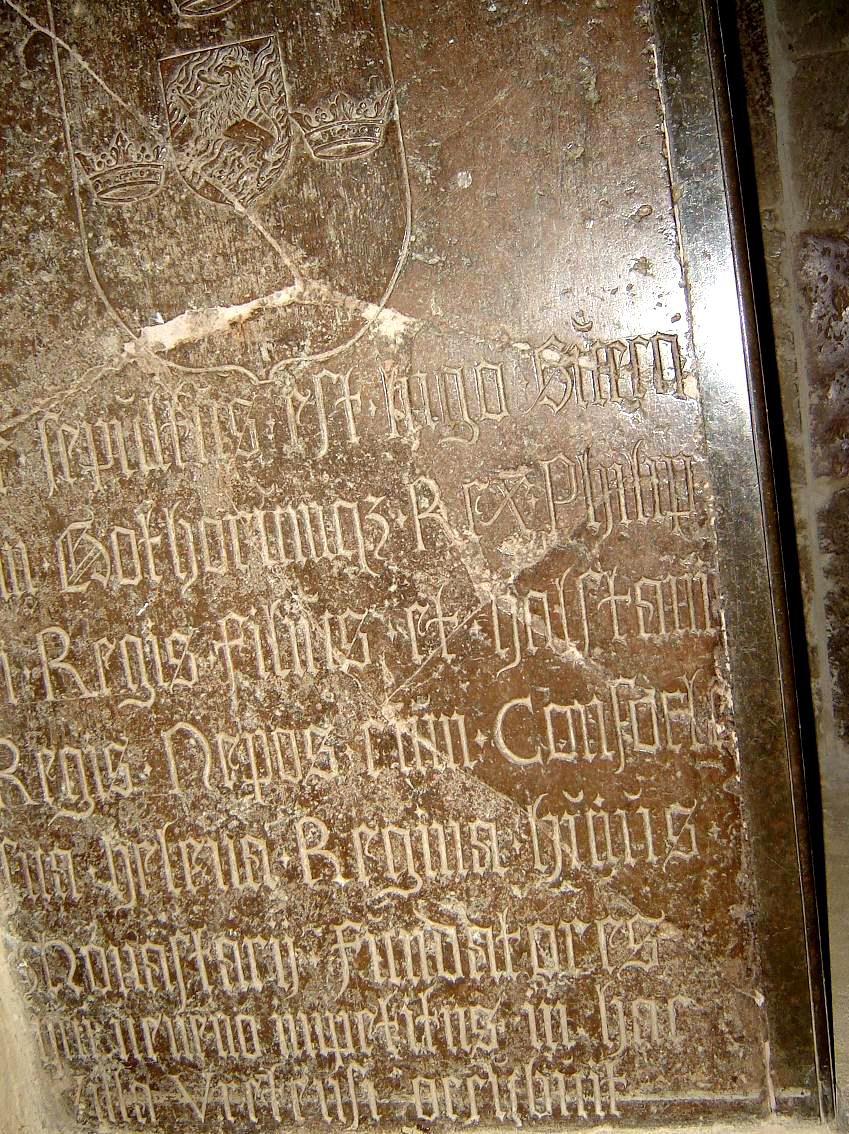 sepultus · est · Ingo Sueco
Gothorumqz · Rex · Philip
Regis · Filius · et · halstani
Regis · Nepos · cum · Consorte
sua · helena · Regina · huius ·
Monastery · Fundatores
veneno impetitus in hac
villa Vretensi · occubuit